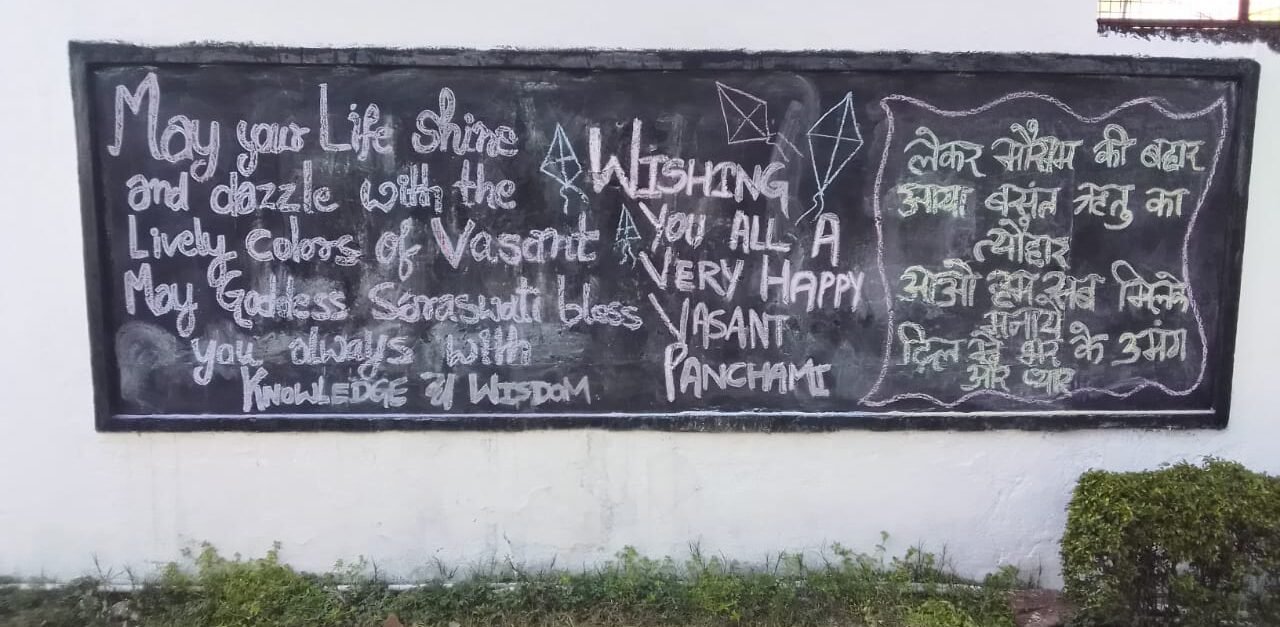 May your Life shine
and dazzle with the
Lively colors of Vasant
May Goddess Saraswati bless
you always with
KNOWLEDGE & WISDOM
WISHING
YOU ALL A
VERY HAPPY
VASANT
PANCHAMI
लेकर मौसम की बहार
आया बसंत ऋतु का
त्यौहार
आओ हम सब मिलके
मनायें
दिल में भर के उमंग
और प्यार